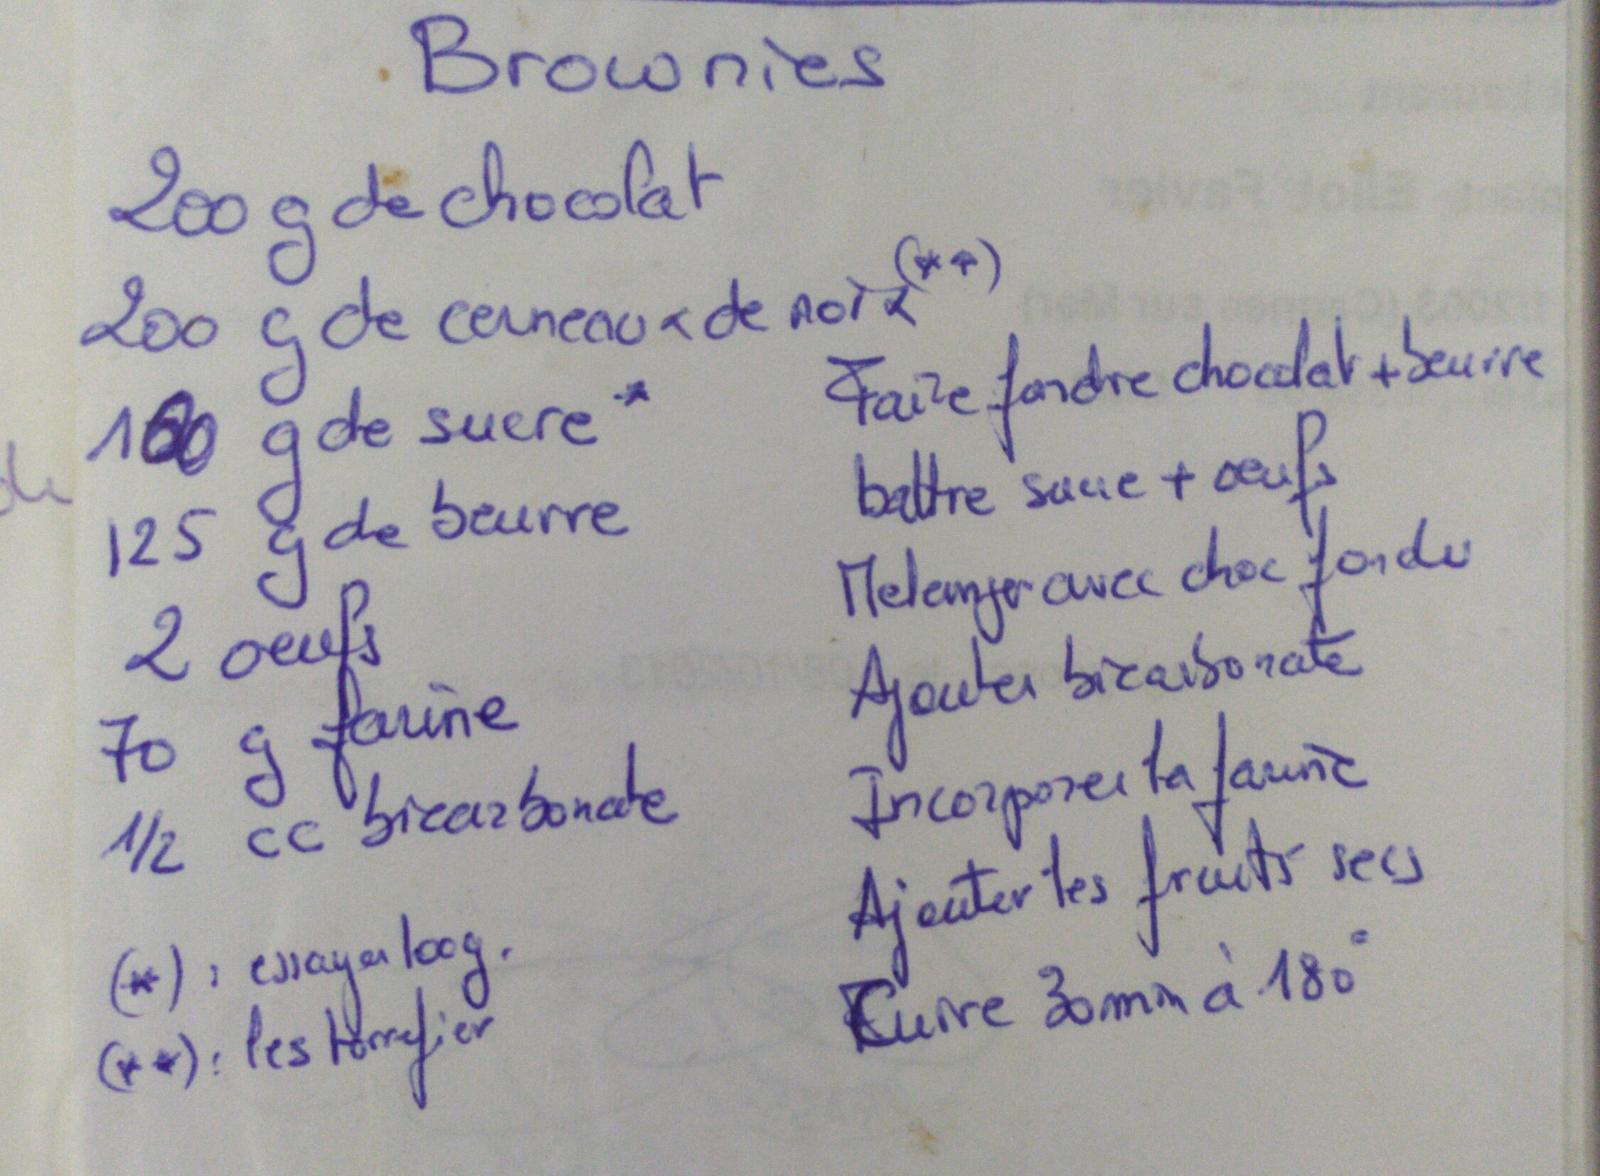 Brownies
200 g de chocolat
200 g de cerneaux de noix (**)
g de sucre *
125 g de beurre
2 oeufs
70 g farine
1/2 cc bicarbonate
(*) : essayer 100g.
(**) : les torrefier
Faire fondre chocolat + beurre
battre sucre + oeufs
Melanger avec choc fondu
Ajouter bicarbonate
Incorporer la farine
Ajouter les fruits secs
Cuire 30 min à 180°